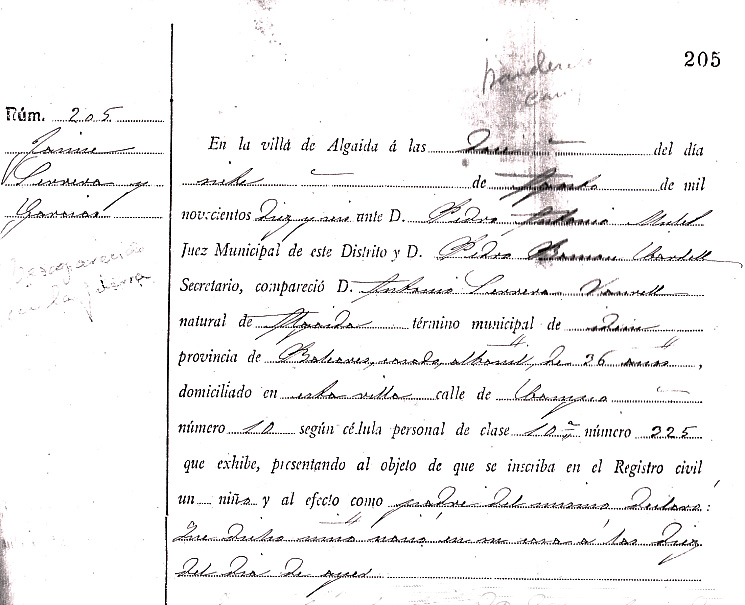 205
Núm. 205
Jaime
Servera y
Garcias
Desaparecido
en la guerra
En la villa de Algaida á las doce del día
siete de Agosto de mil
novecientos diez y seis ante D. Pedro Antonio Mulet
Juez Municipal de este Distrito y D. Pedro
Secretario, compareció D. Antonio Servera Vanrell
natural de Algaida término municipal de idem
provincia de Baleares, casado, albanil, de 36 anos,
domiciliado en esta villa calle de
número 10 según célula personal de clase 10ª número 225
que exhibe, presentando al objeto de que se inscriba en el Registro civil
un niño y al efecto como padre del mismo declaró:
Que dicho niño nació en su casa á las diez
del dia de ayer